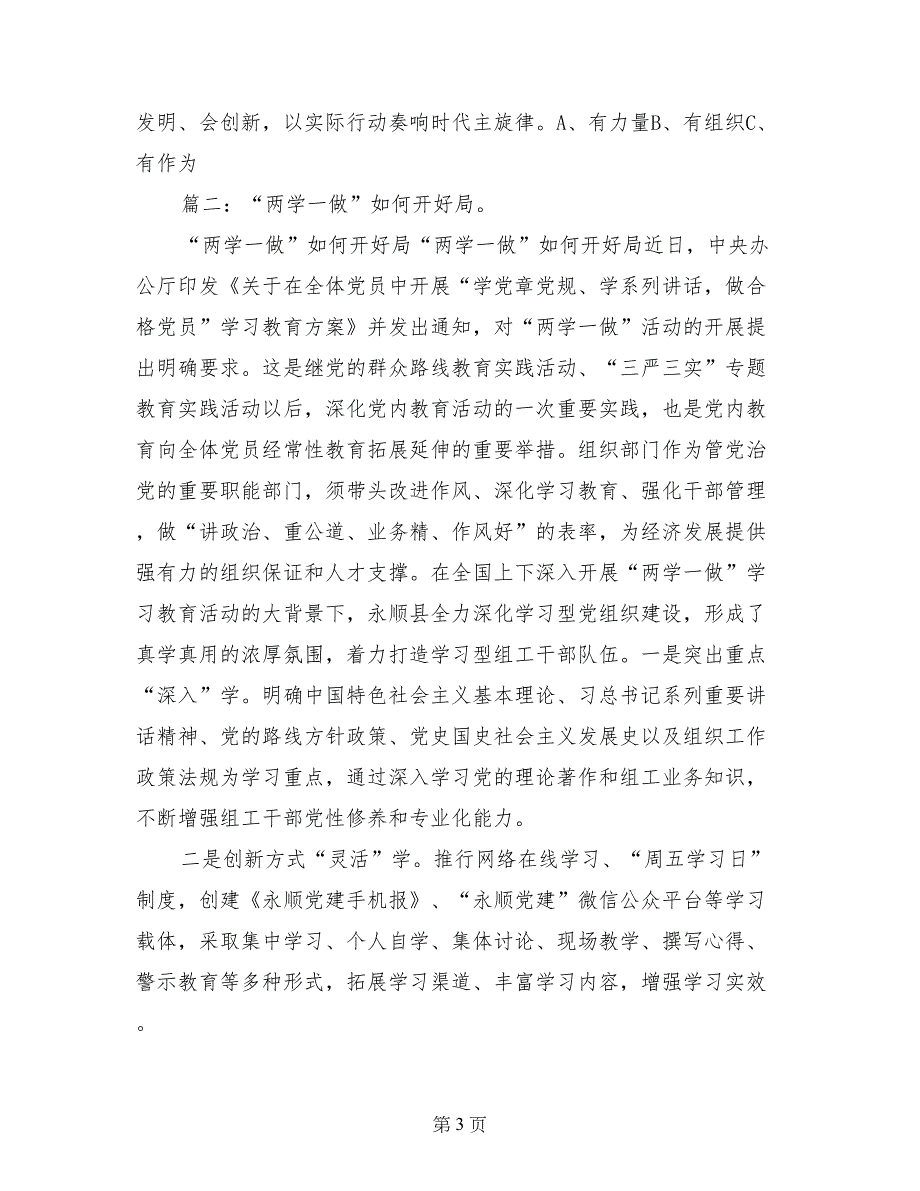 发明、会创新，以实际行动奏响时代主旋律。A、有力量B、有组织C、
有作为
篇二：“两学一做”如何开好局。
“两学一做”如何开好局“两学一做”如何开好局近日，中央办
公厅印发《关于在全体党员中开展“学党章党规、学系列讲话，做合
格党员”学习教育方案》并发出通知，对“两学一做”活动的开展提
出明确要求。这是继党的群众路线教育实践活动、“三严三实”专题
教育实践活动以后，深化党内教育活动的一次重要实践，也是党内教
育向全体党员经常性教育拓展延伸的重要举措。组织部门作为管党治
党的重要职能部门，须带头改进作风、深化学习教育、强化干部管理
，做“讲政治、重公道、业务精、作风好”的表率，为经济发展提供
强有力的组织保证和人才支撑。在全国上下深入开展“两学一做”学
习教育活动的大背景下，永顺县全力深化学习型党组织建设，形成了
真学真用的浓厚氛围，着力打造学习型组工干部队伍。一是突出重点
“深入”学。明确中国特色社会主义基本理论、习总书记系列重要讲
话精神、党的路线方针政策、党史国史社会主义发展史以及组织工作
政策法规为学习重点，通过深入学习党的理论著作和组工业务知识，
不断增强组工干部党性修养和专业化能力。
二是创新方式“灵活”学。推行网络在线学习、“周五学习日”
制度，创建《永顺党建手机报》、“永顺党建”微信公众平台等学习
载体，采取集中学习、个人自学、集体讨论、现场教学、撰写心得、
警示教育等多种形式，拓展学习渠道、丰富学习内容，增强学习实效
。
第 3 页